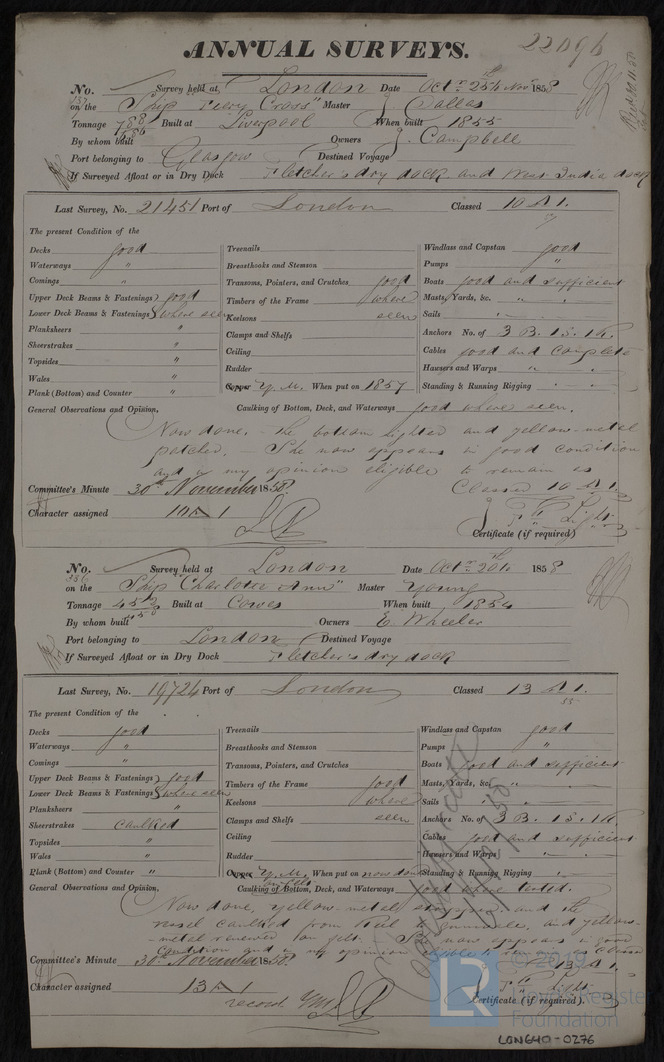 22096
ANNUAL SURVEYS.
No. Survey held at, London Date Octr 25th Novr 1858
on the Ship "Fiery Cross" Master J. Dallas
Tonnage 788 686 Built at Liverpool When built 1855
By whom built Owners J. Campbell
Port belonging to Glasgow Destined Voyage
If Surveyed Afloat or in Dry Dock Fletcher's dry dock and West India dock
Last Survey, No. 21451 Port of London Classed 10 A 1.
The present Condition of the
Decks good Treenails Windlass and Capstan good
Waterways " Breasthooks and Stemson Pumps "
Comings " Transoms, Pointers, and Crutches good Boats good and sufficient
Upper Deck Beams & Fastenings good Timbers of the Frame where Masts, Yards, &c. " "
Lower Deck Beams & Fastenings where seen Keelsons seen Sails
Planksheers " Clamps and Shelfs Anchors No. of 3 B. 1 S. 1 K.
Sheerstrakes " Ceiling Cables good and complete
Topsides " Rudder Hawsers and Warps "
Wales " Copper Y.M. When put on 1857 Standing & Running Rigging "
Plank (Bottom) and Counter "
General Observations and Opinion, Caulking of Bottom, Deck, and Waterways good where seen.
Now done. - The bottom sighted and yellow-metal
patched. - She now appears in good condition
and in my opinion eligible to remain as
Classed 10 A 1.
Committee's Minute 30th November 1858
Character assigned 10 A 1
Certificate (if required)
No. Survey held at London Date Octr 20th 1858
336
on the Ship "Charlotte Ann" Master Young
Tonnage 453 Built at Cowes When built 1854
By whom built Owners E. Wheeler
Port belonging to London Destined Voyage
If Surveyed Afloat or in Dry Dock Fletcher's dry dock
Last Survey, No. 19724 Port of London Classed 13 A 1.
55
The present Condition of the
Decks good Treenails Windlass and Capstan good
Waterways " Breasthooks and Stemson Pumps "
Comings " Transoms, Pointers, and Crutches Boats good and sufficient
Upper Deck Beams & Fastenings good Timbers of the Frame good Masts, Yards, &c. "
Lower Deck Beams & Fastenings where seen Keelsons where Sails
Planksheers " Clamps and Shelfs seen Anchors No. of 3 B. 1 S. 1 K.
Sheerstrakes caulked Ceiling Cables good and sufficient
Topsides " Rudder Hawsers and Warps
Wales " Copper Y.M. on felt When put on now done Standing & Running Rigging
Plank (Bottom) and Counter "
General Observations and Opinion, Caulking of Bottom, Deck, and Waterways good where tested.
Now done, yellow-metal stripped and the
vessel caulked from Keel to Gunwales, and yellow-
-metal renewed on felt. She now appears in good
condition and in my opinion eligible to
13 A 1.
Committee's Minute 30th November 1858
Character assigned 13 A 1
record YM
Certificate (if required).
© 2019
LR
Lloyd's Register
Foundation
LON640-0276